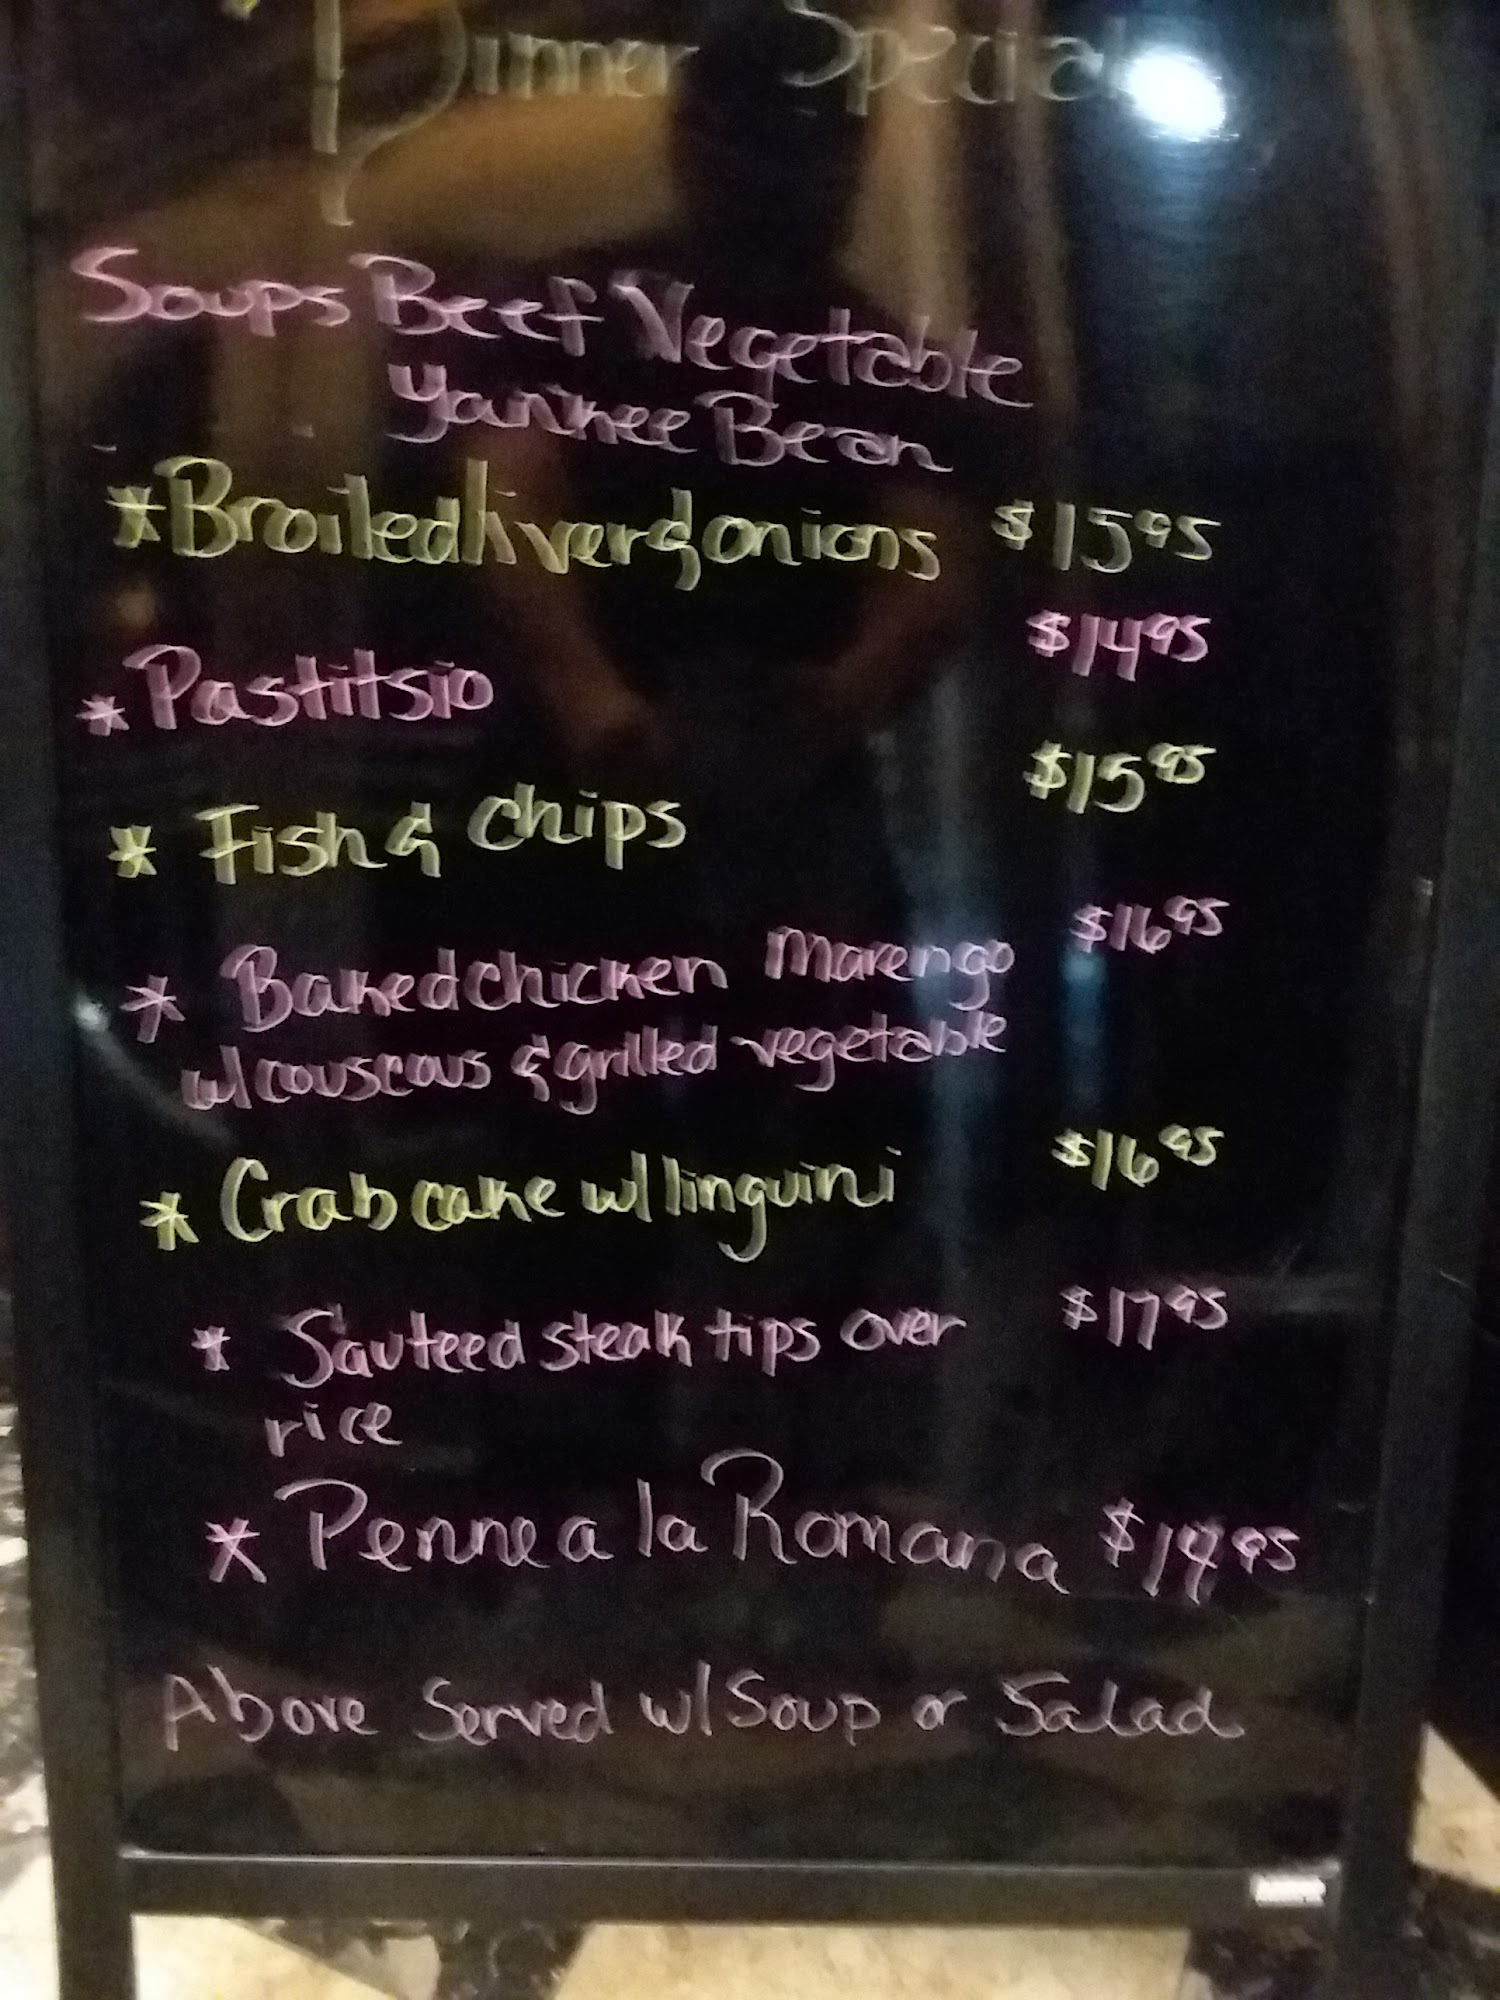 Dinner Special
Soups Beef Vegetable
Yankee Bean
* Broiled liver & onions $15.95
* Pastitsio $14.95
* Fish & chips $15.95
* Baked chicken Marengo $16.95
w/ couscous & grilled vegetable
* Crab cake w/ linguini $16.95
* Sauteed steak tips over $17.95
rice
* Penne a la Romana $14.95
Above Served w/ Soup or Salad